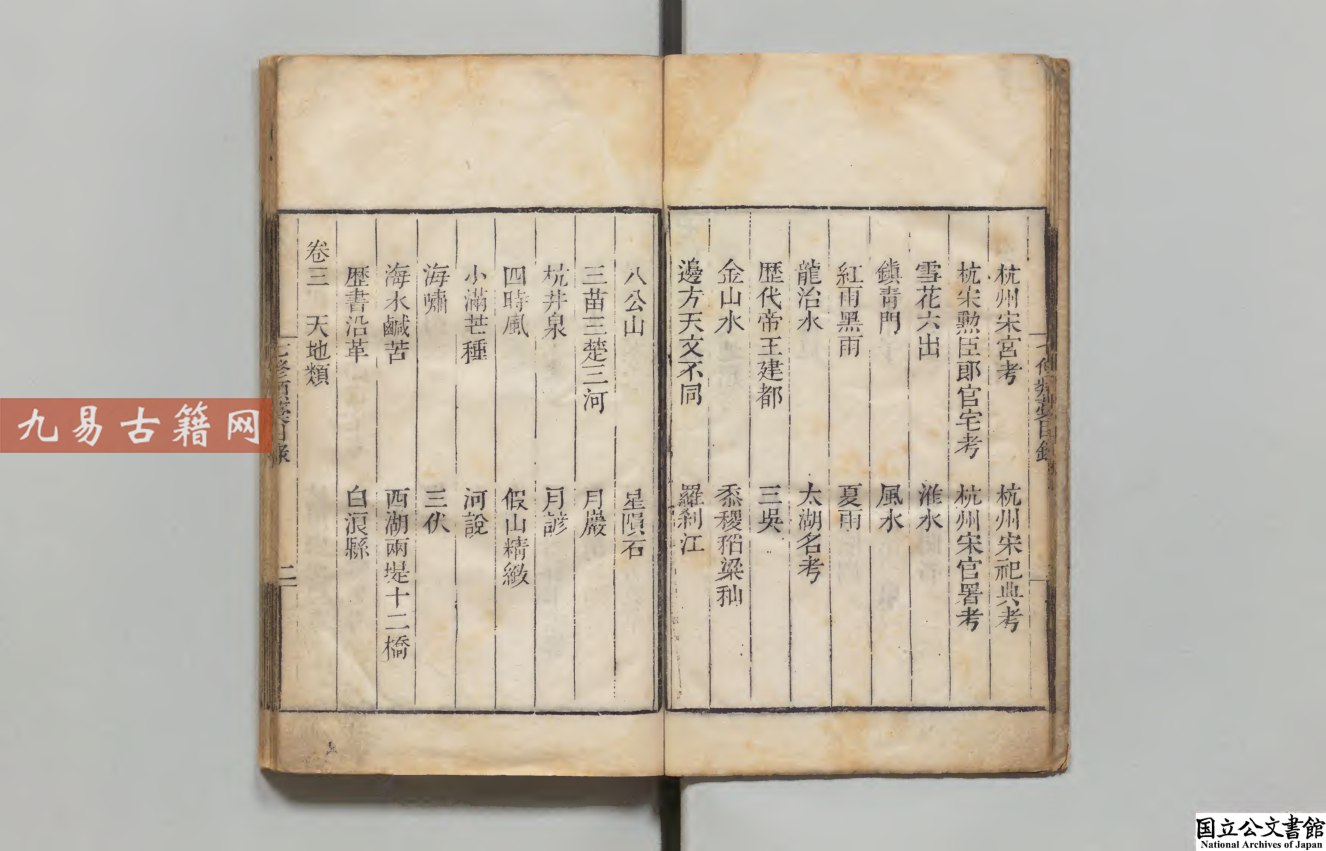 杭州宋宮考　杭州宋祀典考
杭宋勲臣郎官宅考　杭州宋官署考
雪花六出　淮水
鎮青門　風水
紅雨黑雨　夏雨
龍治水　太湖名考
歴代帝王建都　三吳
金山水　黍稷稻粱秫
邊方天文不同　羅刹江
八公山　星隕石
三苗三楚三河　月巖
杭井泉　月諺
四時風　假山精緻
小滿芒種　河說
海嘯　三伏
海水鹹苦　西湖兩堤十二橋
歴書沿革　白湏縣
卷三　天地類
二
九易古籍网
国立公文書館
National Archives of Japan